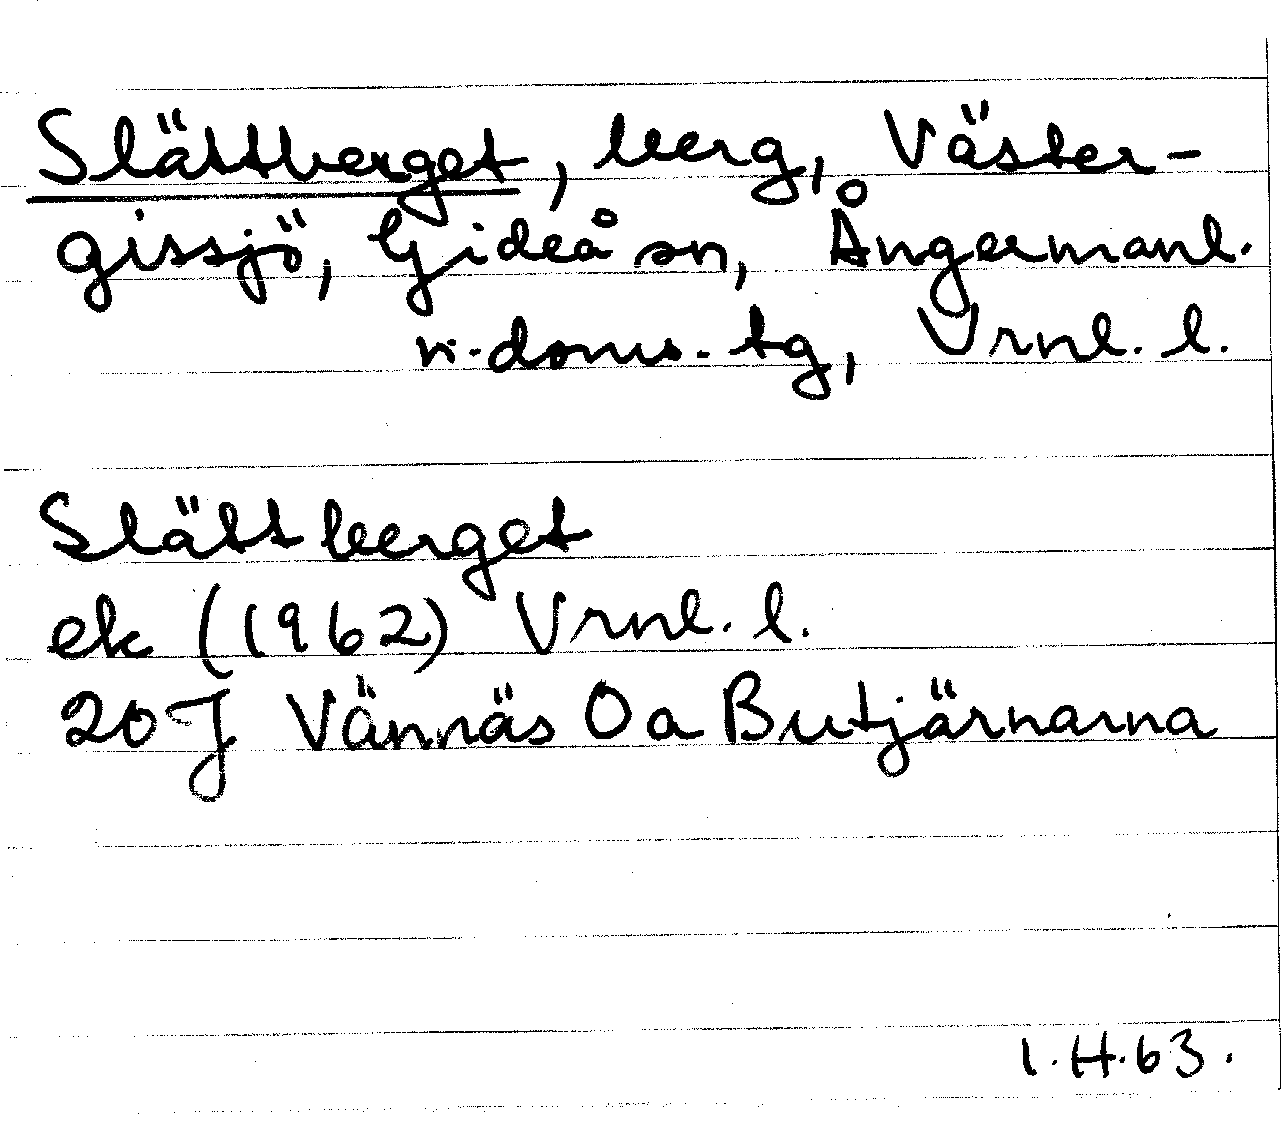 Slättberget, berg, Väster-
gissjö, Gideå sn, Ångermanl.
n. doms. tg, Vrnl. l.
Slättberget
ek (1962) Vrnl. l.
20 J Vännäs Oa Butjärnarna
I.H.63.